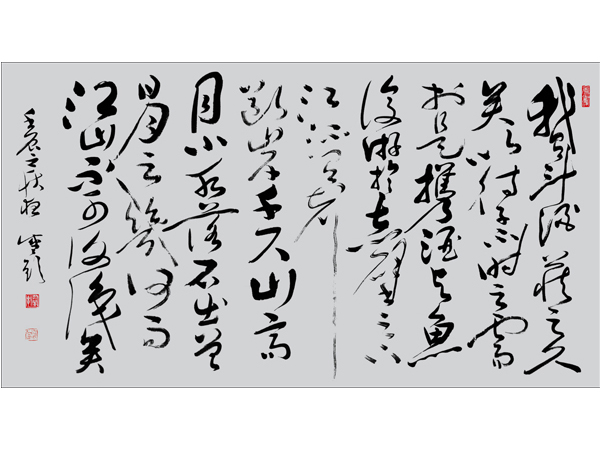 我有斗酒藏之久
矣以待子不时之需
於是携酒与鱼
復游於赤壁之下
江流有声
断岸千尺山高
月小水落石出曾
日月之幾何而
江山不可復識矣
壬辰之秋